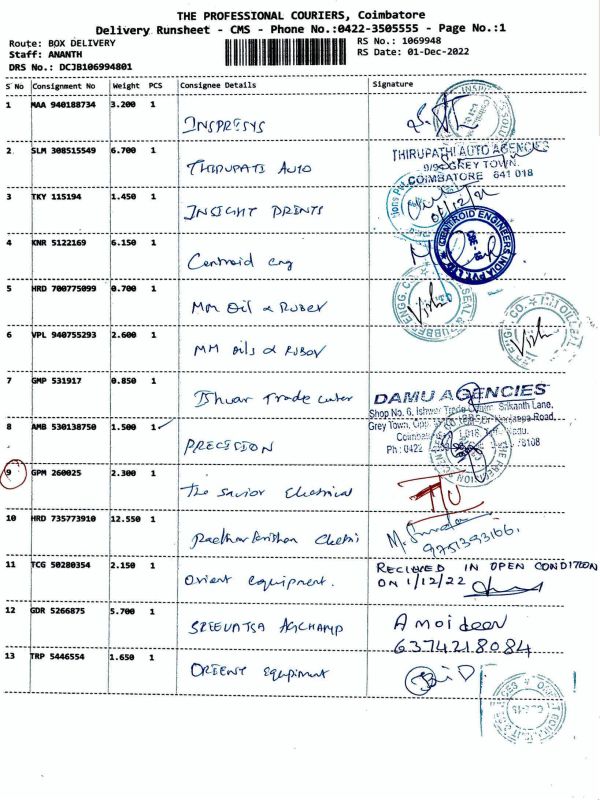 THE PROFESSIONAL COURIERS, Coimbatore
Delivery Runsheet - CMS - Phone No.:0422-3505555 - Page No.:1
Route: BOX DELIVERY
RS No.: 1069948
Staff: ANANTH
RS Date: 01-Dec-2022
DRS No.: DCJB106994801
S No Consignment No Weight PCS Consignee Details Signature
1 MAA 940188734 3.200 1 INSPRESYS
2 SLM 308515549 6.700 1 THIRUPATI AUTO
THIRUPATHI AUTO AGENCIES
9/9 GREY TOWN.
COIMBATORE 641 018
3 TKY 115194 1.450 1 INSIGHT PRINTS
4 KNR 5122169 6.150 1 Centroid eng
CENTROID ENGINEERS INDIA PVT LTD
5 HRD 700775099 0.700 1 MM Oil & Rubev
6 VPL 940755293 2.600 1 MM Oils & RUBOV
7 GMP 531917 0.850 1 Ishwar Trade Center
DAMU AGENCIES
Shop No. 6, Ishwer Trade Srikanth Lane,
Grey Town,
8 AMB 530138750 1.500 1 PRECISION
Ph : 0422
9 GPM 260025 2.300 1 The Savior Electrical
10 HRD 735773910 12.550 1 Radhakrishna Chetti
9751393166.
11 TCG 50280354 2.150 1 Orient equipment.
RECIEVED IN OPEN CONDITION
ON 1/12/22
12 GDR 5266875 5.700 1 SREEVATSA AGCHAMP
A moideen
6374218084
13 TRP 5446554 1.650 1 ORIENT Equipment